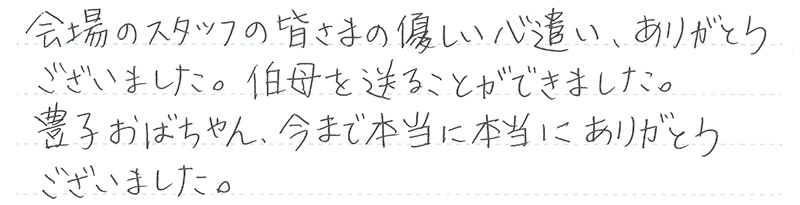 会場のスタッフの皆さまの優しい心遣い、ありがとう
ございました。伯母を送ることができました。
豊子おばちゃん、今まで本当に本当にありがとう
ございました。